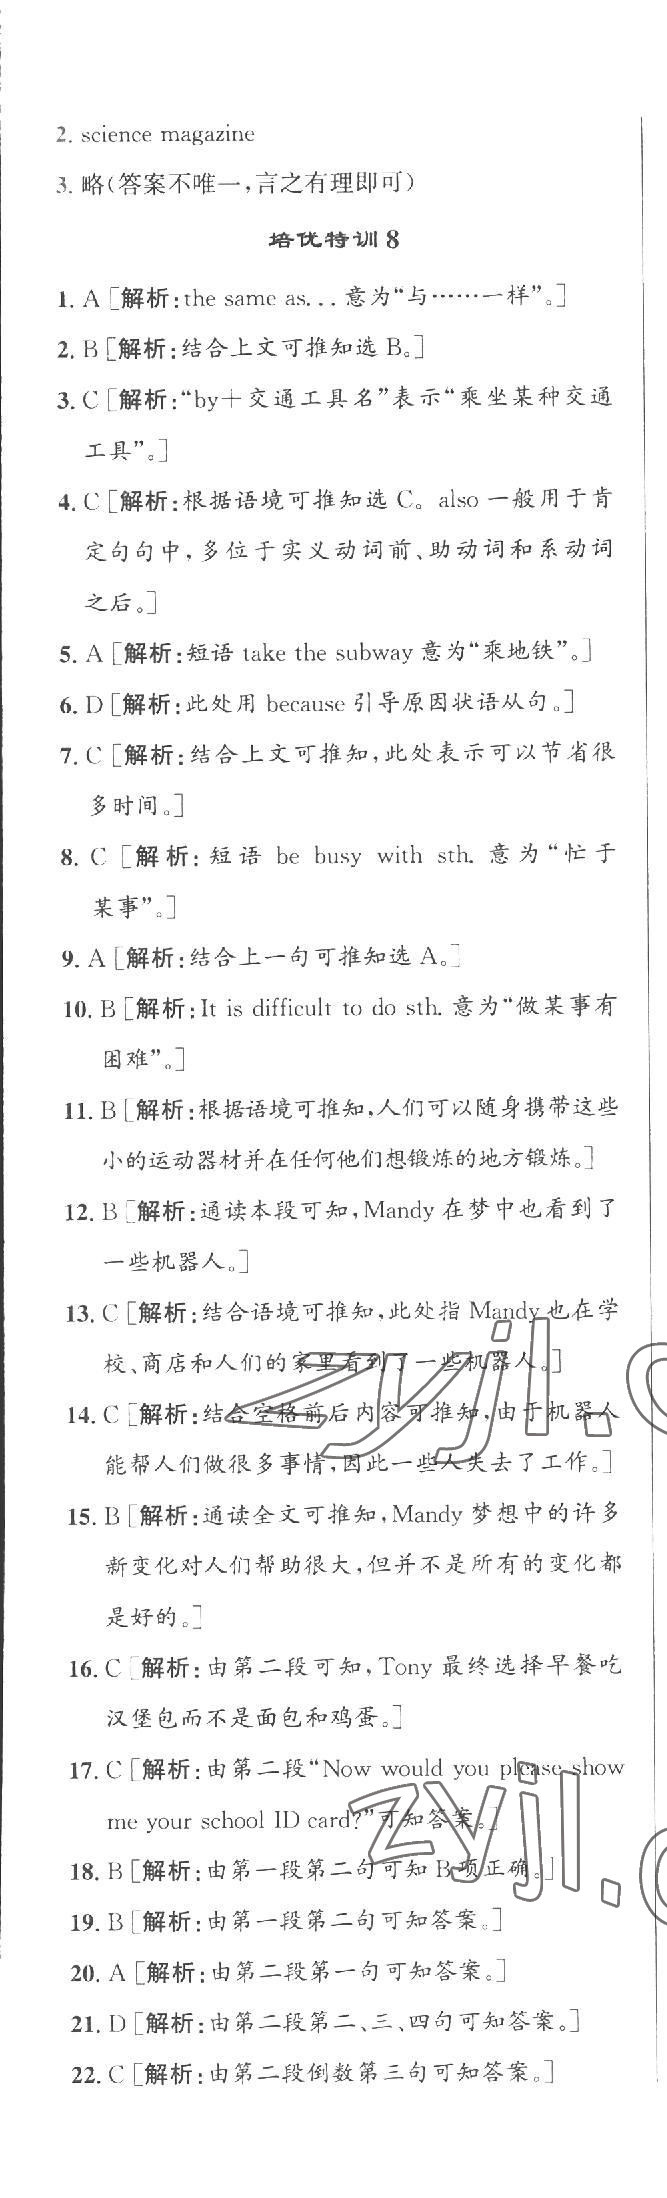 2. science magazine
3. 略(答案不唯一,言之有理即可)
培优特训 8
1. A [解析:the same as... 意为“与……一样”。]
2. B [解析:结合上文可推知选 B。]
3. C [解析:“by+交通工具名”表示“乘坐某种交通
工具”。]
4. C [解析:根据语境可推知选 C。also 一般用于肯
定句句中,多位于实义动词前、助动词和系动词
之后。]
5. A [解析:短语 take the subway 意为“乘地铁”。]
6. D [解析:此处用 because 引导原因状语从句。]
7. C [解析:结合上文可推知,此处表示可以节省很
多时间。]
8. C [解析:短语 be busy with sth. 意为“忙于
某事”。]
9. A [解析:结合上一句可推知选 A。]
10. B [解析:It is difficult to do sth. 意为“做某事有
困难”。]
11. B [解析:根据语境可推知,人们可以随身携带这些
小的运动器材并在任何他们想锻炼的地方锻炼。]
12. B [解析:通读本段可知,Mandy 在梦中也看到了
一些机器人。]
13. C [解析:结合语境可推知,此处指 Mandy 也在学
校、商店和人们的家里看到了一些机器人。]
14. C [解析:结合空格前后内容可推知,由于机器人
能帮人们做很多事情,因此一些人失去了工作。]
15. B [解析:通读全文可推知,Mandy 梦想中的许多
新变化对人们帮助很大,但并不是所有的变化都
是好的。]
16. C [解析:由第二段可知,Tony 最终选择早餐吃
汉堡包而不是面包和鸡蛋。]
17. C [解析:由第二段“Now would you please show
me your school ID card?”可知答案。]
18. B [解析:由第一段第二句可知 B 项正确。]
19. B [解析:由第一段第二句可知答案。]
20. A [解析:由第二段第一句可知答案。]
21. D [解析:由第二段第二、三、四句可知答案。]
22. C [解析:由第二段倒数第三句可知答案。]
zyjl.c
zyjl.c